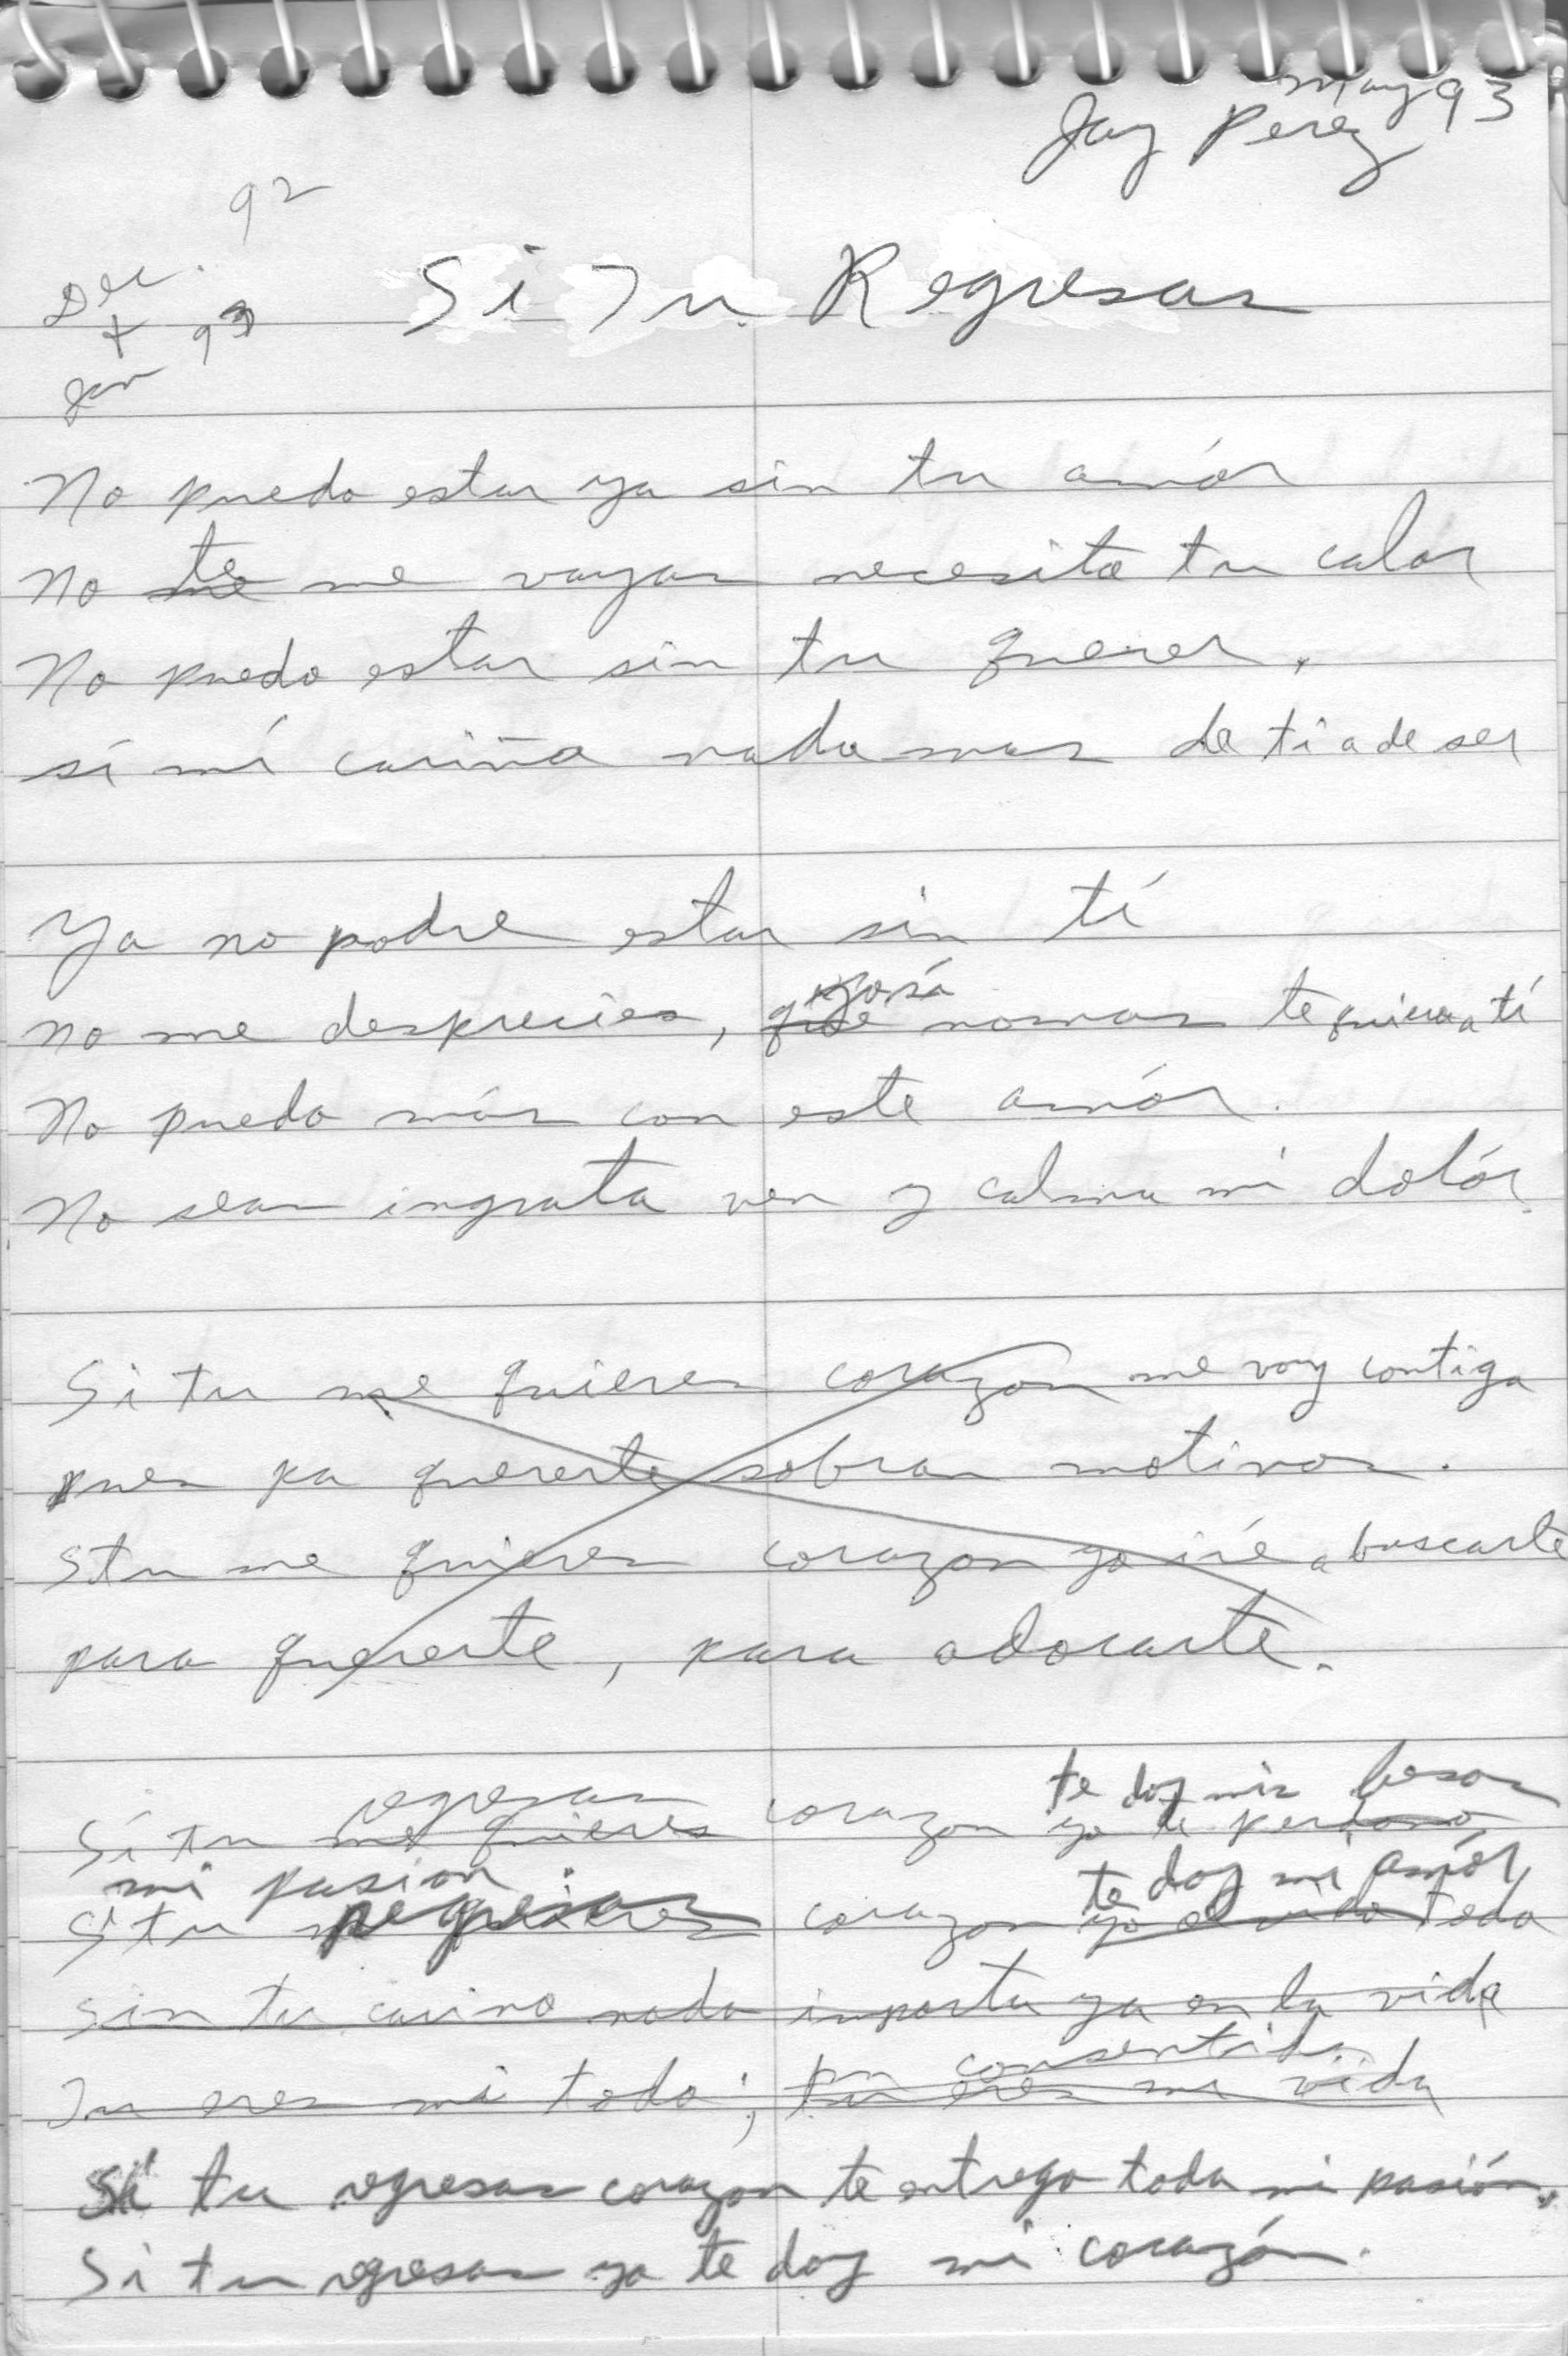 May 93
Jay Perez
92
Dec.
+ 93
Jan
Si Tu Regresas
No puedo estar ya sin tu amór
te
No me me vayas necesito tu calor
No puedo estar sin tu querer.
sí mí cariño nada mas de ti a de ser
Ya no podre estar sin tí
yo sí
no me desprecies, que nomas te quiero a tí
No puedo más con este amór.
No seas ingrata ven y calma mi dolór.
Si tu me quieres corazon me voy contigo
pues pa quererte sobran motivos.
Si tu me quieres corazon yo iré a buscarte
para quererte, para adorarte.
regresas te doy mis besos
Si tu me quieres corazon yo te perdono
mi pasion. te doy mi amór
Si tu regresas corazon yo olvido todo
sin tu carino nada importa ya en la vida
consentida
Tu eres mi todo; tu eres mi vida
Si tu regresas corazon te entrego toda mi pasión.
Si tu regresas yo te doy mi corazón.